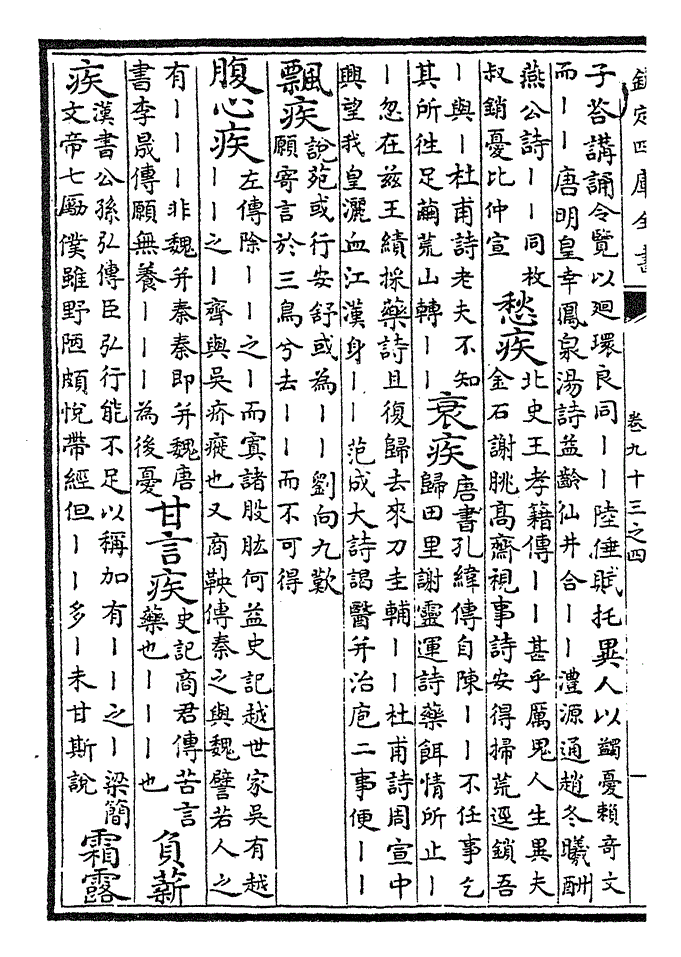 欽定四庫全書
卷九十三之四
一
子答講誦令覽以迴環良同丨丨陸倕賦托異人以蠲憂賴奇文
而丨丨唐明皇幸鳳泉湯詩益齡仙井合丨丨灃源通趙冬曦酬
燕公詩丨丨同枚
叔銷憂比仲宣
愁疾
北史王孝籍傳丨丨甚乎厲鬼人生異夫
金石謝朓髙齋視事詩安得掃荒逕鎖吾
丨與丨杜甫詩老夫不知
其所往足繭荒山轉丨丨
衰疾
唐書孔緯傳自陳丨丨不任事乞
歸田里謝靈運詩藥餌情所止丨
丨忽在兹王績採藥詩且復歸去來刀圭輔丨丨杜甫詩周宣中
興望我皇灑血江漢身丨丨范成大詩謁醫并治庖二事便丨丨
飄疾
說苑或行安舒或為丨丨劉向九歎
願寄言於三鳥兮去丨丨而不可得
腹心疾
左傳除丨丨之丨而寘諸股肱何益史記越世家吳有越
丨丨之丨齊與吳疥癬也又商鞅傳秦之與魏譬若人之
有丨丨丨非魏并秦秦即并魏唐
書李晟傳願無養丨丨丨為後憂
甘言疾
史記商君傳苦言
藥也丨丨丨也
負薪
疾
漢書公孫弘傳臣弘行能不足以稱加有丨丨之丨梁簡
文帝七勵僕雖野陋頗悅帶經但丨丨多丨未甘斯說
霜露